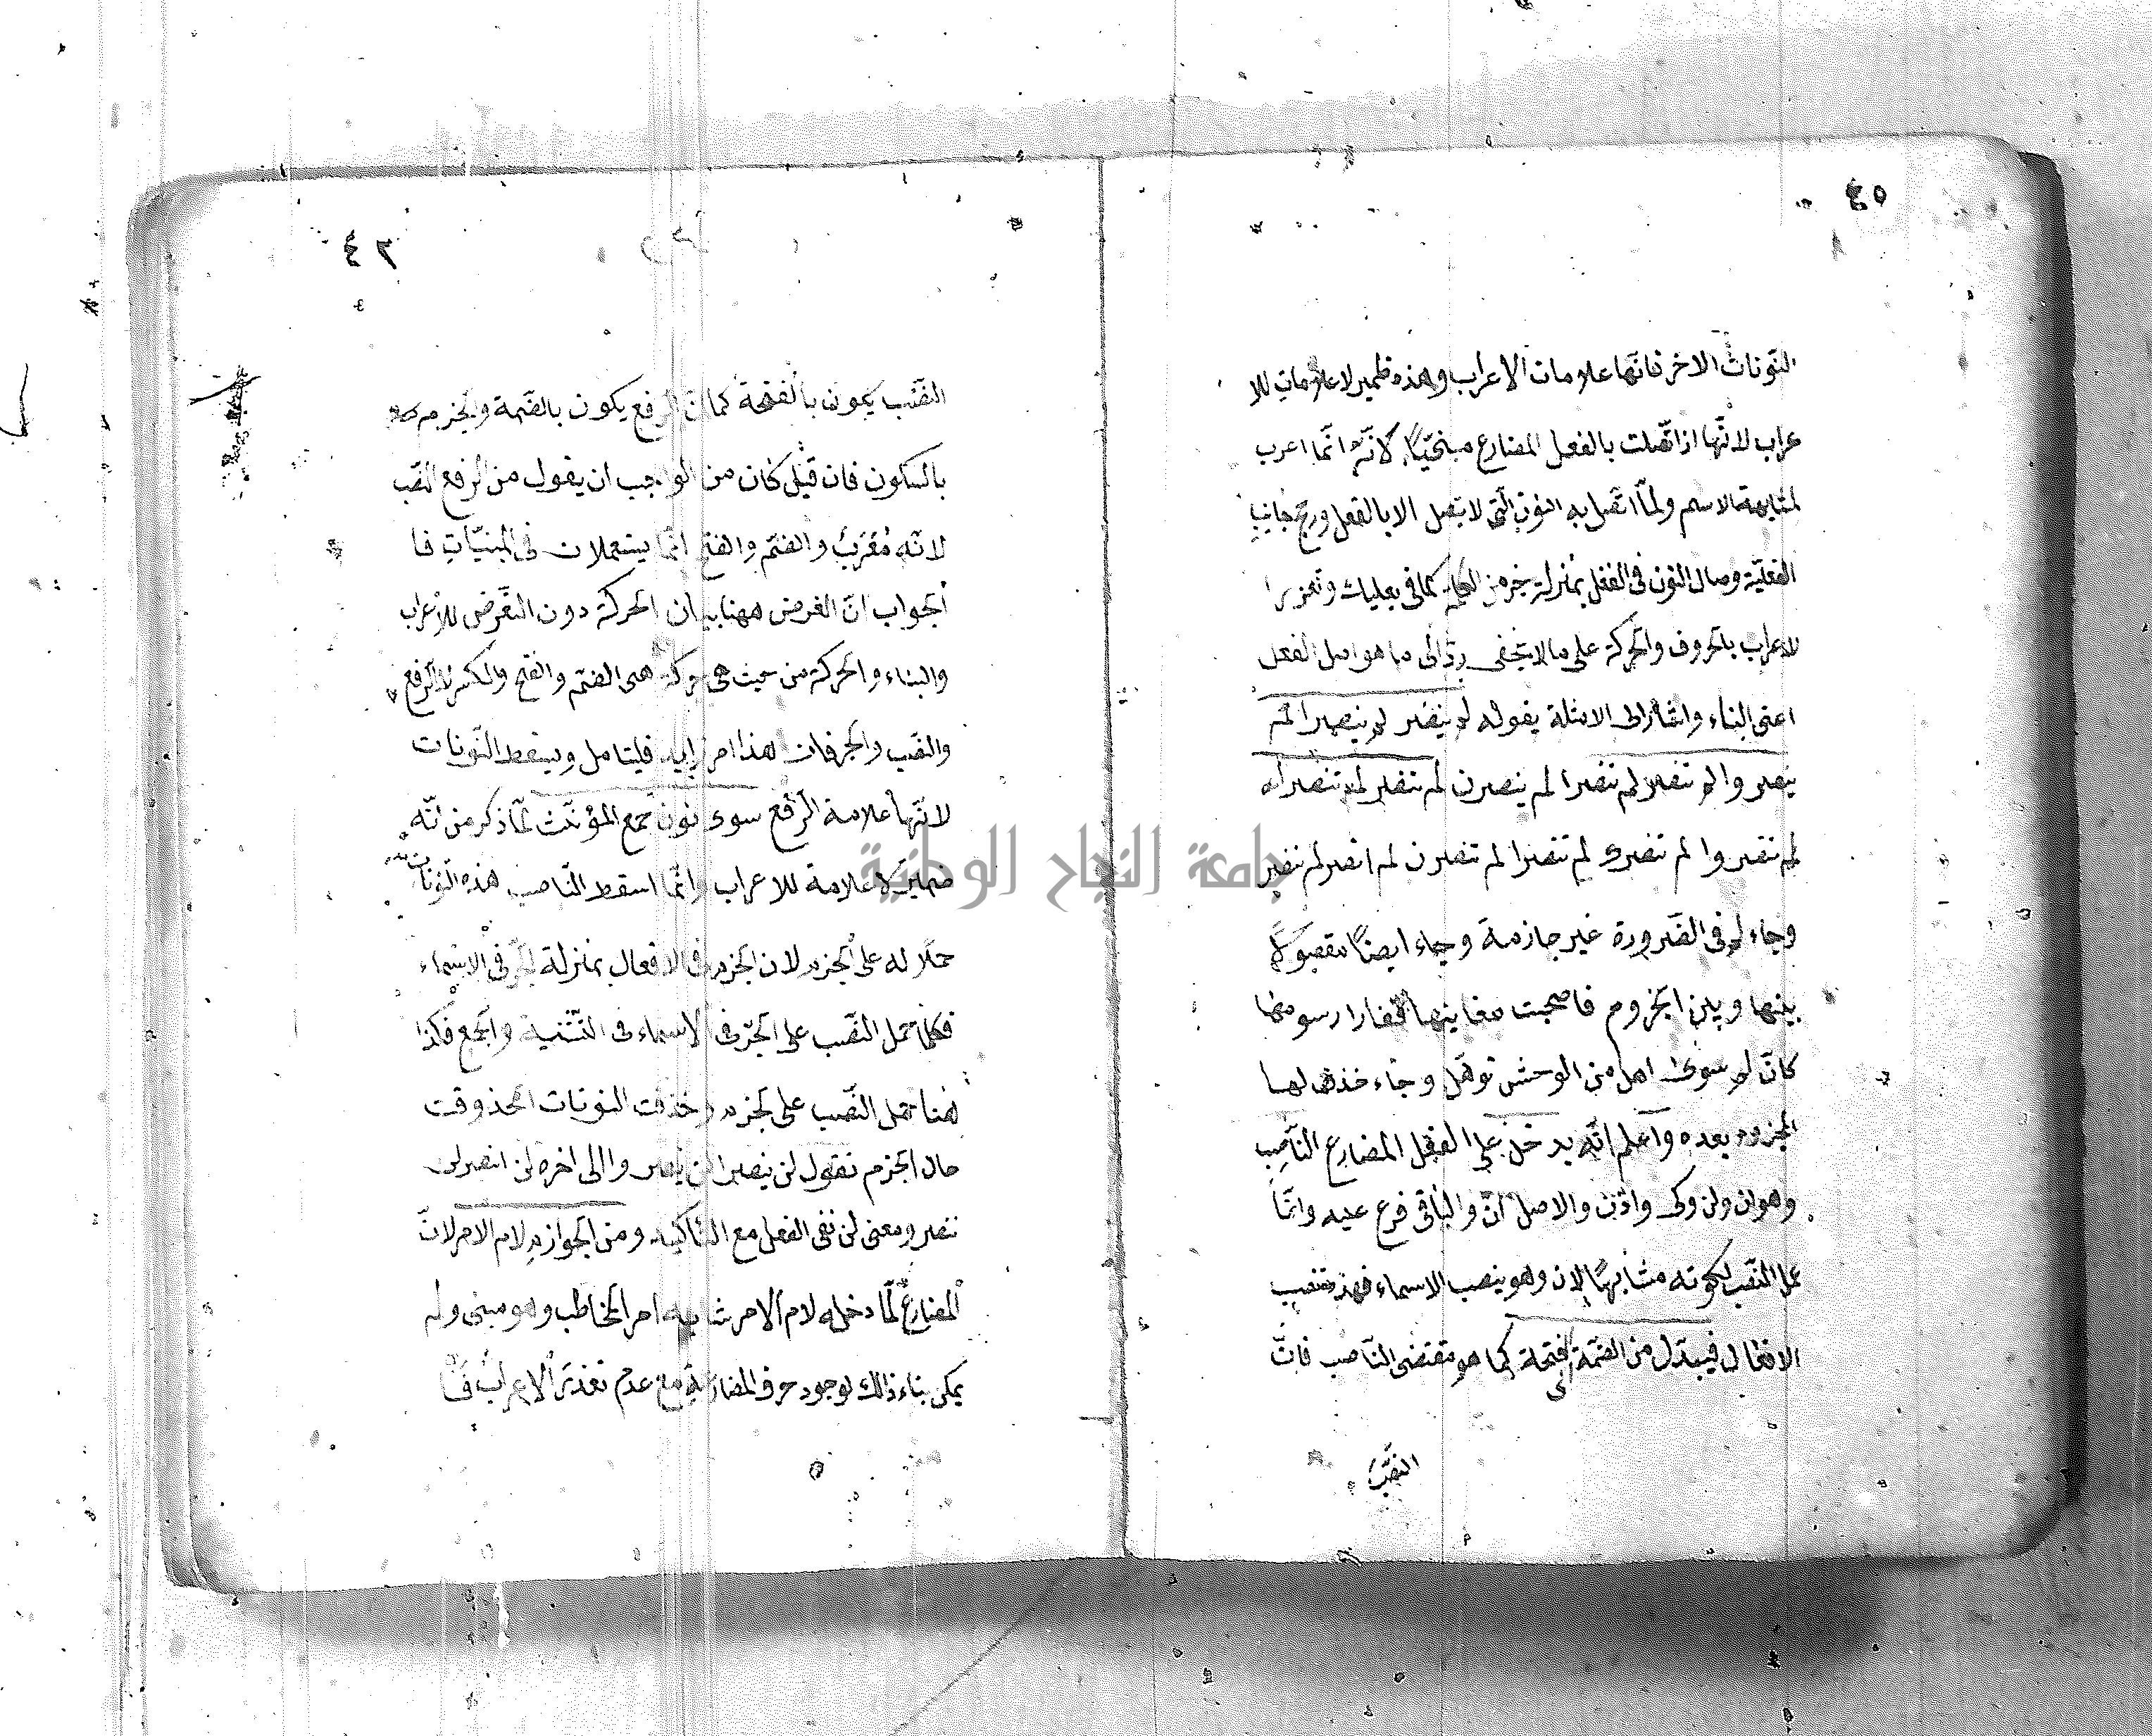 ٤٥
النّونات الاخر فانّها علامات الاعراب وهذه ضمير لا علامات للا
عراب لانّها اذا تّصلت بالفعل المضارع مبنيًّا لانّه انّما اعرب
لمشابهة الاسم ولمّا اتّصل به النون الّتى لا تتصل الا بالفعل ورجح جانب
الفعليّة وصار النون فى الفعل بمنزلة جزء من الكلمة كما فى بعلبك وتعذر
الاعراب بالحروف والحركة على ما لا يخفى ردّ الى ما هو اصل الفعل
اعنى البناء واشار الى الامثلة بقوله لم ينصر لم ينصرا لم
ينصروا لم تنصر لم تنصرا لم ينصرن لم تنصر لم تنصرا
لم تنصروا لم تنصرى لم تنصرا لم تنصرن لم انصر لم ننصر
وجاء لم فى الضّرورة غير جازمة وجاء ايضًا مفصولا
بينها وبين المجزوم فاضحت مغانيها قفارا رسومها
كانّ لم سوى اهل من الوحش توهل وجاء حذف لها
المجزوم بعده واعلم انّه يدخل على الفعل المضارع النّاصب
وهو ان ولن وكى واذن والاصل انّ والباقى فرع عليه وانّما
عمل النّصب لكونه مشابهًا لان وهو ينصب الاسماء فهذه تنصب
الافعال فيبدّل من الضّمة الفتحة كما هو مقتضى النّاصب فانّ
النّصب
٤٦
النّصب يكون بالفتحة كما انّ الرفع يكون بالضّمة والجزم
بالسكون فان قيل كان من الواجب ان يقول من الرفع النّصب
لانّه مُعْرَبٌ والضّم والفتح انّما يستعملان فى المبنيّات فا
لجواب انّ الغرض ههنا بيان الحركة دون التّعرّض للاعراب
والبناء والحركة من حيث هى حركة هى الضّم والفتح والكسر لا الرّفع
والنّصب والجر فان هذا امر زايد فليتامل ويسقط النّونات
لانّها علامة الرّفع سوى نون جمع المؤنّث لما ذكر من انّه
ضمير لا علامة للاعراب وانّما اسقط النّاصب هذه النّونات
حملا له على الجزم لان الجزم فى الافعال بمنزلة الجرّ فى الاسماء
فكما حمل النّصب على الجرّ فى الاسماء فى التّثنية والجمع فكذا
هنا حمل النّصب على الجزم وحذفت النونات المحذوفة
حال الجزم نقول لن ينصر لن ينصرا الى اخره لن انصر لن
ننصر ومعنى لن نفى الفعل مع التّاكيد ومن الجوازم لام الامر لانّ
المضارع لمّا دخله لام الامر شابه امر المخاطب وهو مبنى ولم
يمكن بناء ذالك لوجود حرف المضارعة مع عدم تعذّر الاعراب
جامعة النجاح الوطنية